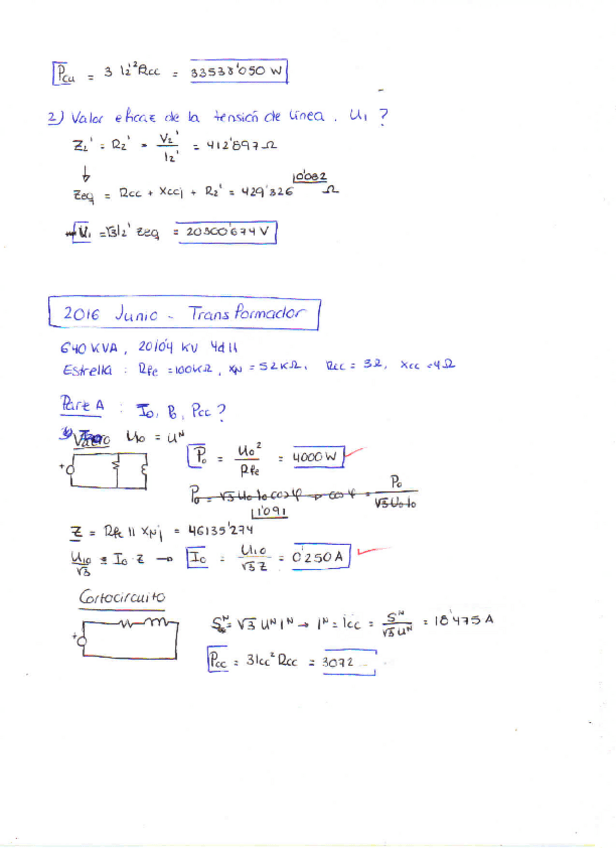 Pcu = 3 I2'² Rcc = 33538'050 W
2) Valor eficaz de la tensión de línea, U1 ?
Z2' = R2' = V2'/I2' = 412'897 Ω
↓
Zeq = Rcc + Xccj + R2' = 429'326 |10'082 Ω
U1 = √3 I2' Zeq = 20300'674 V
2016 Junio - Transformador
640 KVA, 20/0'4 KV Yd11
Estrella : RFe = 100KΩ, Xμ = 52KΩ, Rcc = 3Ω, Xcc = 4Ω
Parte A : Io, Po, Pcc ?
Vacío Uo = Uᴺ
Po = Uo²/RFe = 4000 W
Po = √3 Uo Io cos φ → cos φ = Po/(√3 Uo Io)
Z = RFe || Xμj = 46135'274 |1'091
U10/√3 = Io · Z → Io = U10/(√3 Z) = 0'250 A
Cortocircuito
Sᴺ = √3 Uᴺ Iᴺ → Iᴺ = Icc = Sᴺ/(√3 Uᴺ) = 18'475 A
Pcc = 3 Icc² Rcc = 3072